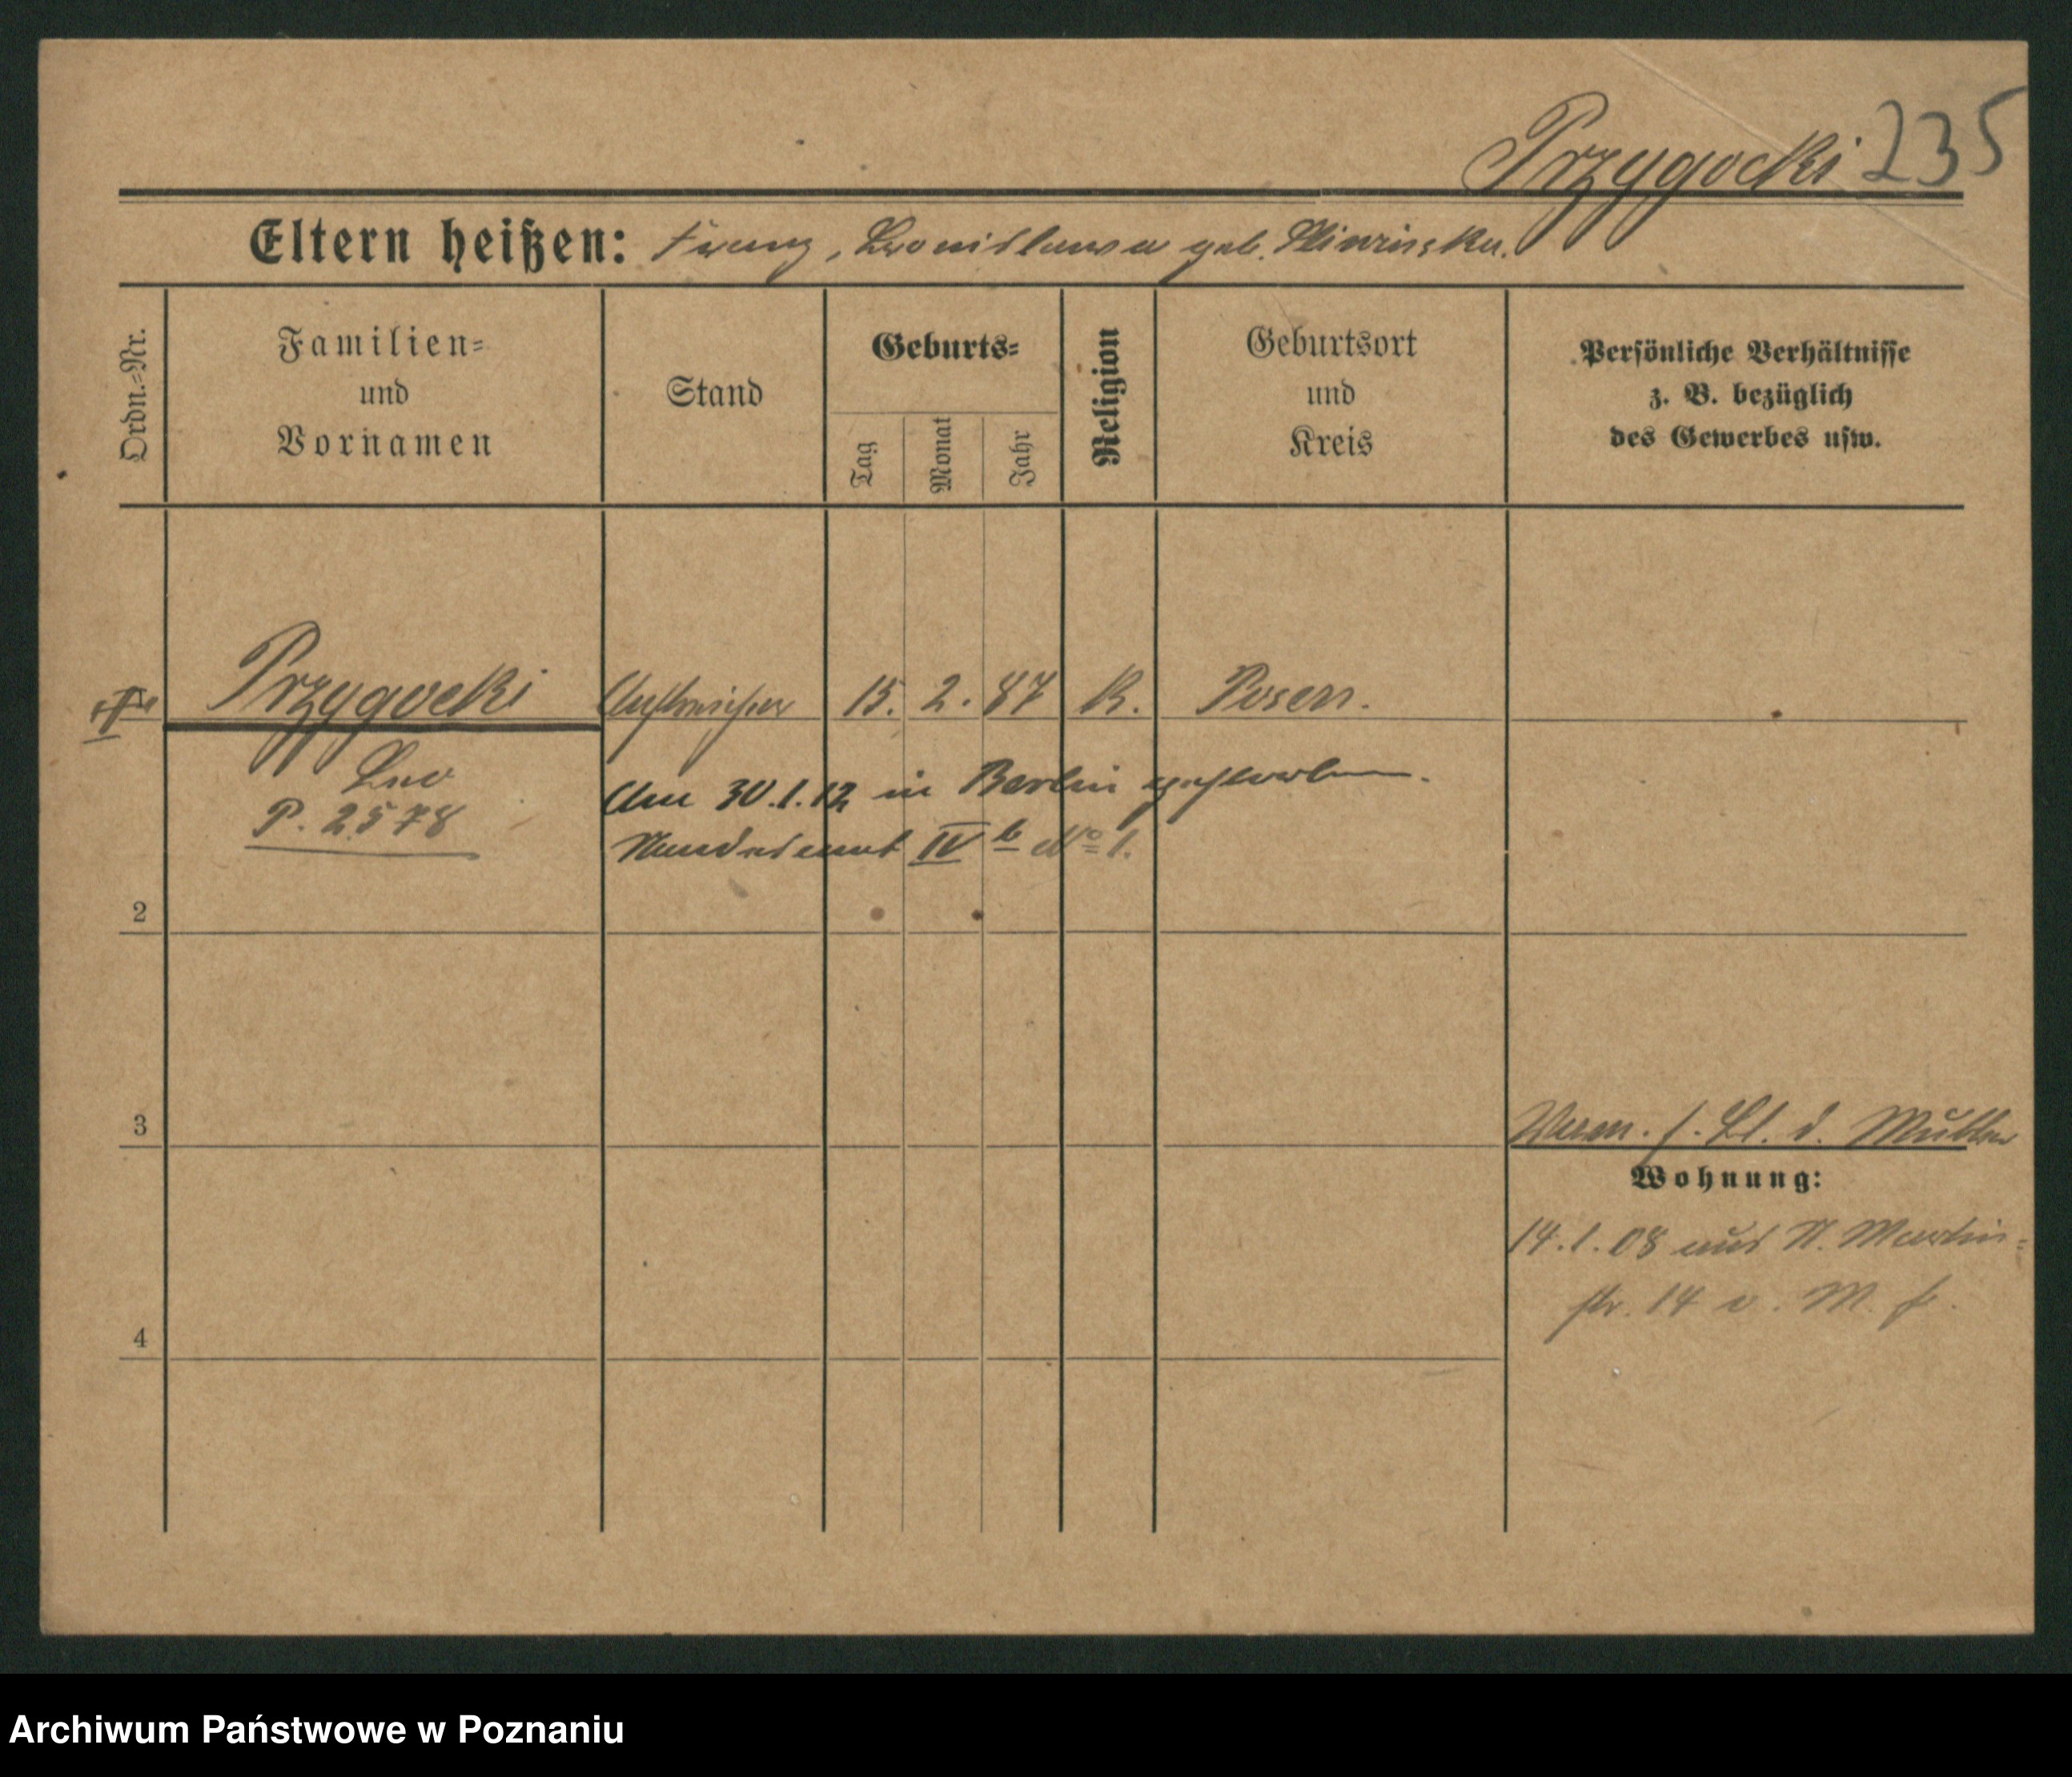 Przygocki 235
Eltern heißen: Franz, Bronislawa geb. Sliwinska.
Ordn.-Nr.
Familien-
und
Vornamen
Stand
Geburts-
Tag
Monat
Jahr
Religion
Geburtsort
und
Kreis
Persönliche Verhältnisse
z. B. bezüglich
des Gewerbes usw.
Przygocki 15. 2. 87 K. Posen.
Leo
P. 2578
Am 30.1.12 in Berlin gestorben.
Standesamt IV b No 1.
2
3
4
f. Bl. d. Mutter
Wohnung:
14.1.08 aus St. Martin-
str. 14 v. M.
Archiwum Państwowe w Poznaniu